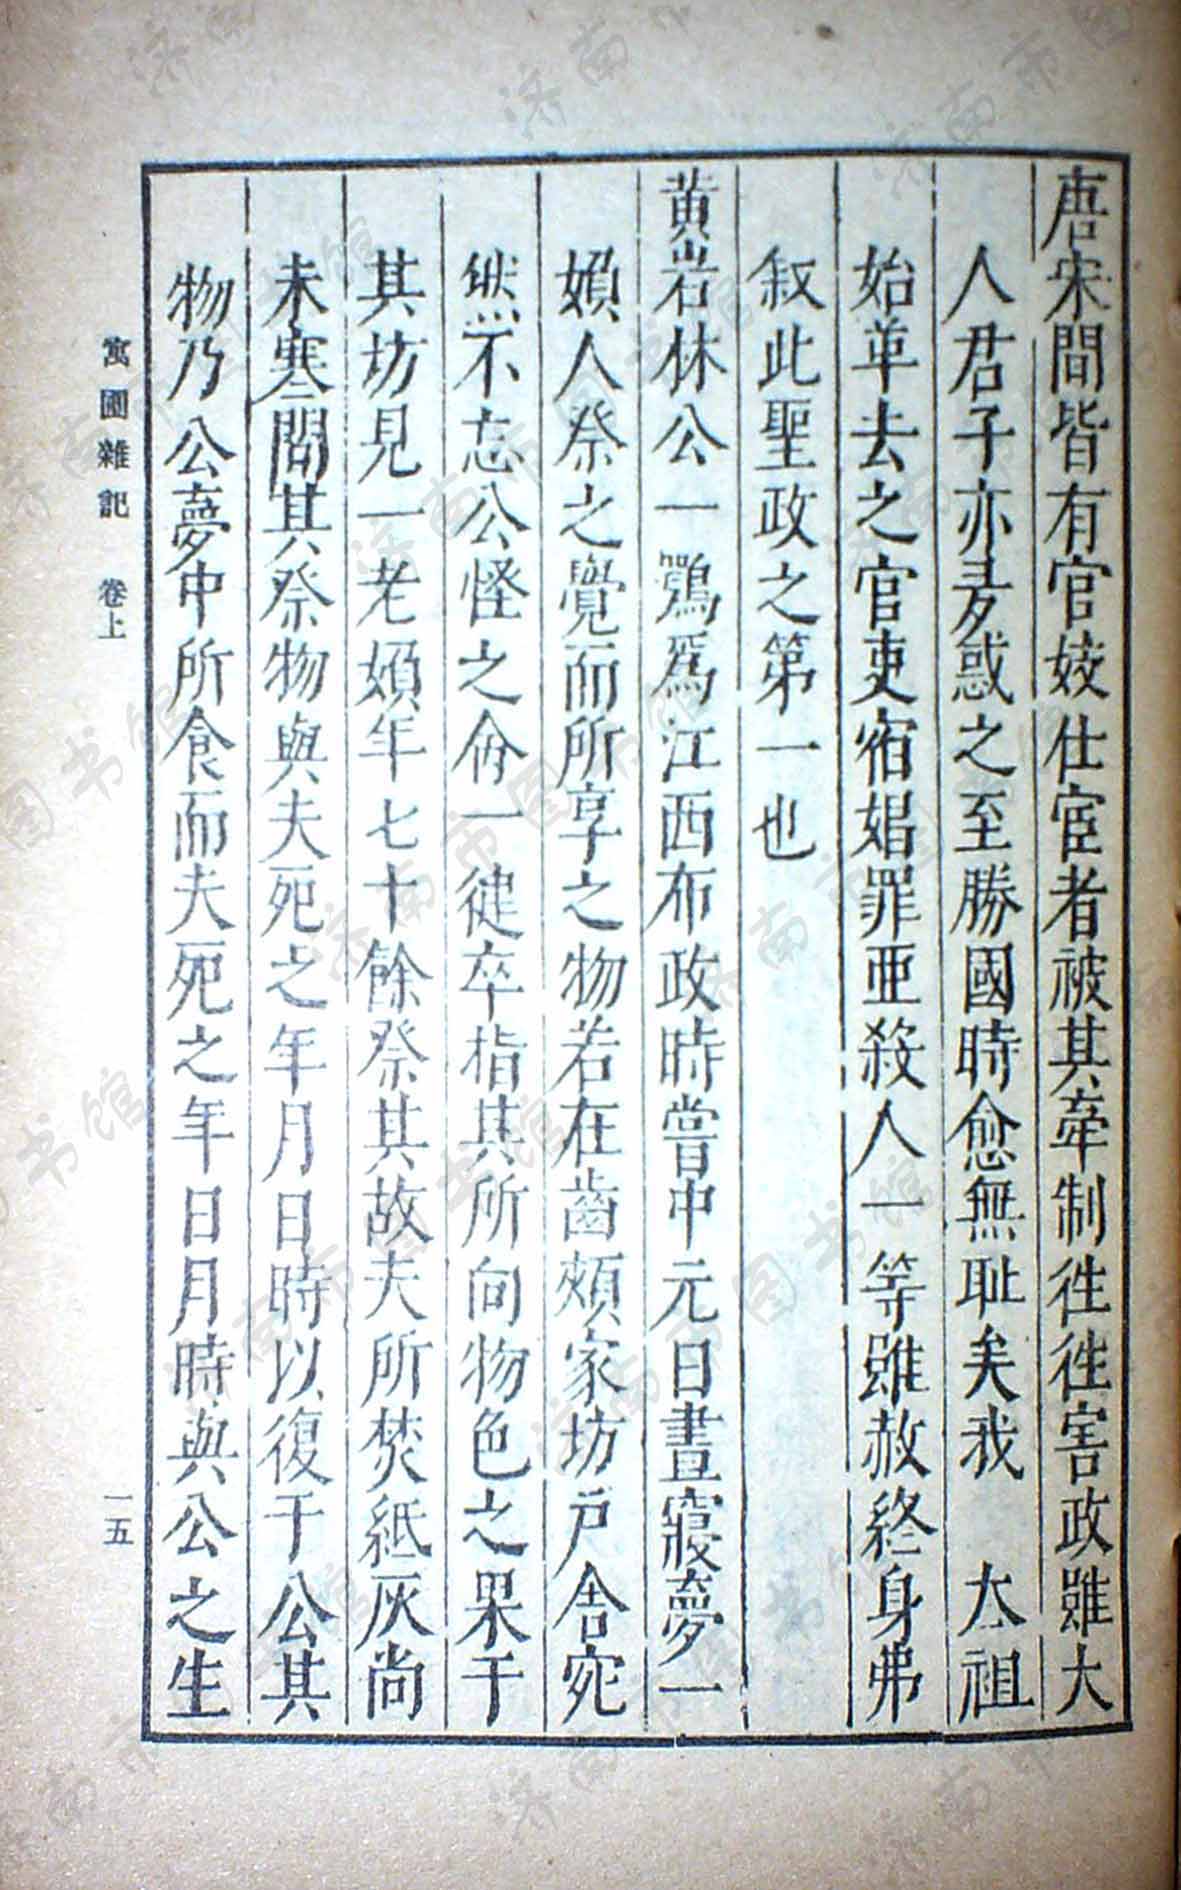 唐宋間皆有官妓仕宦者被其牽制徃徃害政雖大
人君子亦多惑之至勝國時愈無耻矣我　太祖
始革去之官吏宿娼罪亞殺人一等雖赦終身弗
叙此聖政之第一也
黃岩林公一鶚爲江西布政時嘗中元日晝寢夢一
媍人祭之覺而所享之物若在齒頰家坊戶舍宛
然不忘公怪之命一徤卒指其所向物色之果于
其坊見一老媍年七十餘祭其故夫所焚紙灰尚
未寒問其祭物與夫死之年月日時以復于公其
物乃公夢中所食而夫死之年日月時與公之生
寓圃雜記　卷上
一五
济南市图书馆